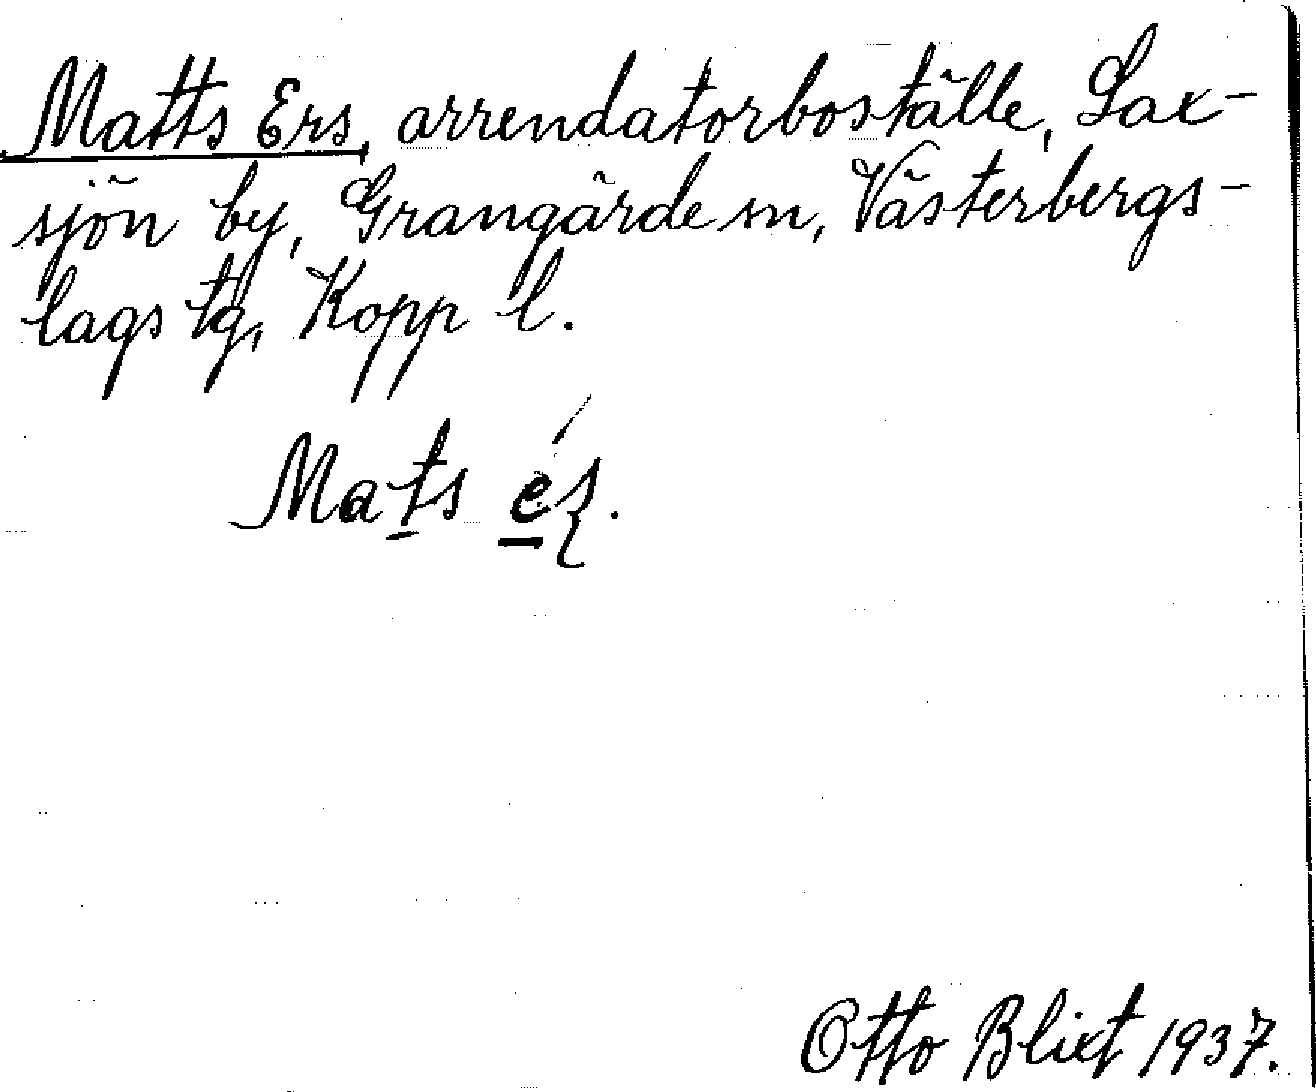 Matts Ers, arrendatorboställe, Lax-
sjön by, Grangärde sn, Västerbergs-
lags tg, Kopp l.
Mats éʂ.
Otto Blixt 1937.